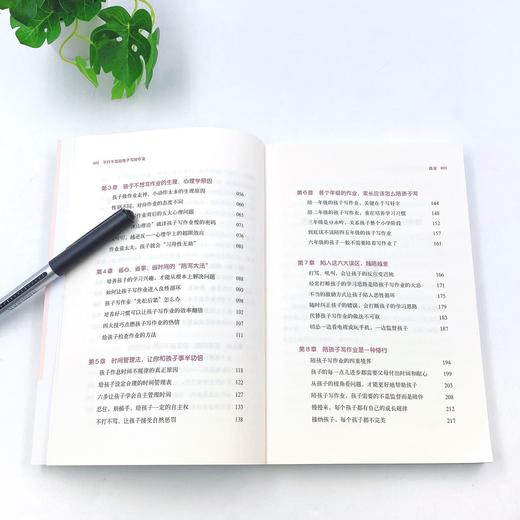 不打不骂陪孩子写好作业
第3章 孩子不想写作业的生理、心理学原因
孩子做作业走神、小动作太多的生理原因 056
性别不同，对待作业的态度不同 059
作业背后的五大心理问题 062
心理论”破译孩子写作业慢的密码
越逆反——心理学上的超限效应
作业量太大，孩子就会“习得性无助”
第4章 省心、省事、省时间的“陪写大法”
培养孩子的学习兴趣，才能从根本上解决问题
如何让孩子写作业进入良性循环
孩子写作业“先松后紧”怎么办
培养好习惯可以让孩子写作业的效率翻倍
四大技巧点燃孩子写作业的热情
给孩子检查作业的方法
第5章 时间管理法，让你和孩子事半功倍
孩子作息时间不规律的真正原因 118
给孩子设定合理的时间管理表 122
六步让孩子学会自主管理时间 127
忍住，别插手，给孩子一定的自主权 131
不打不骂，让孩子接受自然惩罚 138
目录
第6章 各个年级的作业，家长应该怎么陪孩子写
陪一年级的孩子写作业，关键在于写好字 144
陪二年级的孩子写作业，重在培养学习习惯 148
三年级是分水岭，关系孩子整个小学阶段 152
到底该不该陪四五年级的孩子写作业
六年级的孩子一般不需要陪着写作业了
第7章 陪入这六大误区，越陪越差
打骂、吼叫，会让孩子的反应变迟钝
经常打断孩子的学习思路是陪孩子写作业的大忌
不当的激励方式让孩子陷入恶性循环
随时纠正孩子的错误，会打断孩子的学习思路
代替孩子写作业的做法不可取
切忌一边看电视或玩手机，一边监督孩子
第8章 陪孩子写作业是一种修行
陪孩子写作业的四重境界 194
孩子的每一点儿进步都需要父母付出时间和耐心 199
从孩子的视角看问题，才能更好地帮助孩子 204
陪孩子写作业，孩子需要的不是监督而是陪伴 208
慢慢来，每个孩子都有自己的成长规律
接纳孩子，每个孩子都不完美 217